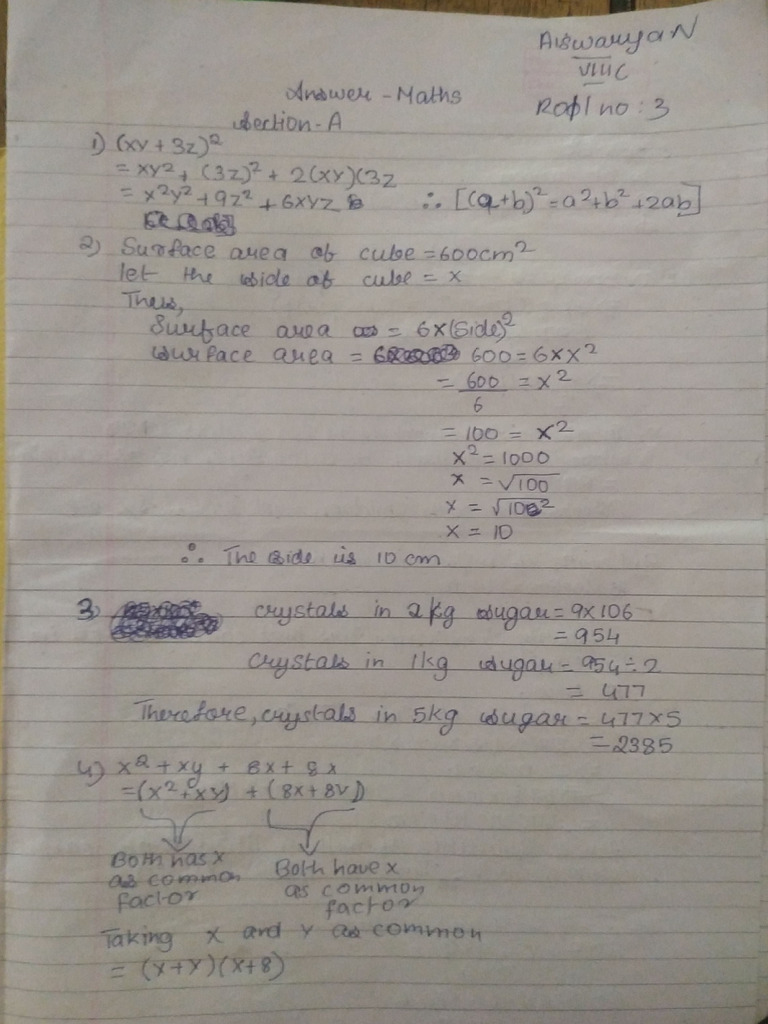 Aiswarya N
VIII C
Roll no : 3
Answer - Maths
Section - A
1) (xy + 3z)²
= xy² + (3z)² + 2(xy)(3z
= x²y² + 9z² + 6xyz ∴ [(a+b)² = a²+b²+2ab]
2) Surface area of cube = 600cm²
let the side of cube = x
Then,
Surface area = 6x(Side)²
Surface area = 600 = 6xx²
= 600/6 = x²
= 100 = x²
x² = 1000
x = √100
x = √10²
x = 10
∴ The side is 10 cm
3) crystals in 2kg sugar = 9x106
= 954
crystals in 1kg sugar = 954÷2
= 477
Therefore, crystals in 5kg sugar = 477x5
= 2385
4) x² + xy + 8x + 8x
= (x² + xy) + (8x + 8y)
Both has x as common factor
Both have x as common factor
Taking x and y as common
= (x+y)(x+8)